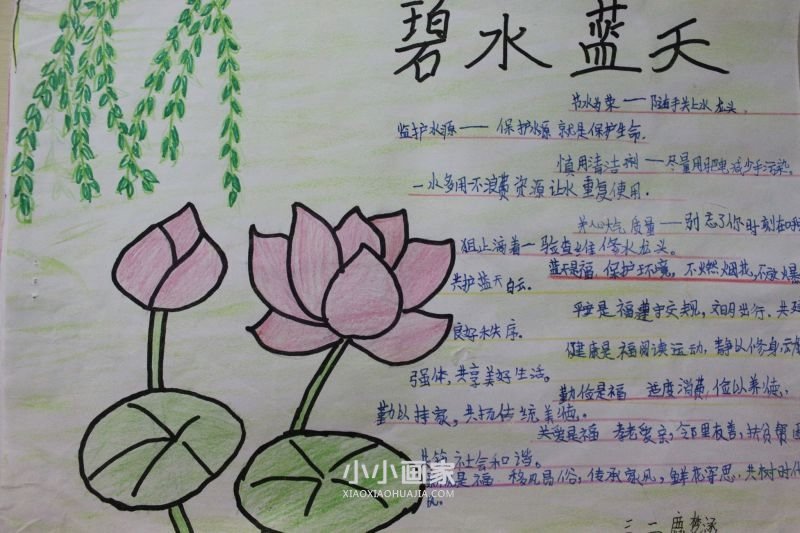 碧水蓝天
节水为荣——随手关上水龙头.
监护水源——保护水源就是保护生命.
慎用清洁剂——尽量用肥皂减少手污染.
一水多用不浪费资源让水重复使用.
关心大气质量——别忘了你时刻在呼
阻止滴着——检查维修水龙头。
蓝天是福 保护环境, 不燃烟花, 不放爆
共护蓝天白云.
平安是福遵守交规, 文明出行、共建
良好秩序.
健康是福阅读运动, 静以修身,动
强体, 共享美好生活。
勤俭是福 适度消费, 俭以养德,
勤以持家, 共传统美德。
关爱是福 孝老爱亲, 邻里友善, 扶贫帮困
共筑社会和谐。
是福 移风易俗, 传承家风, 鲜花寄思, 共树时代
小小画家
XIAOXIAOHUAJIA.COM
三二